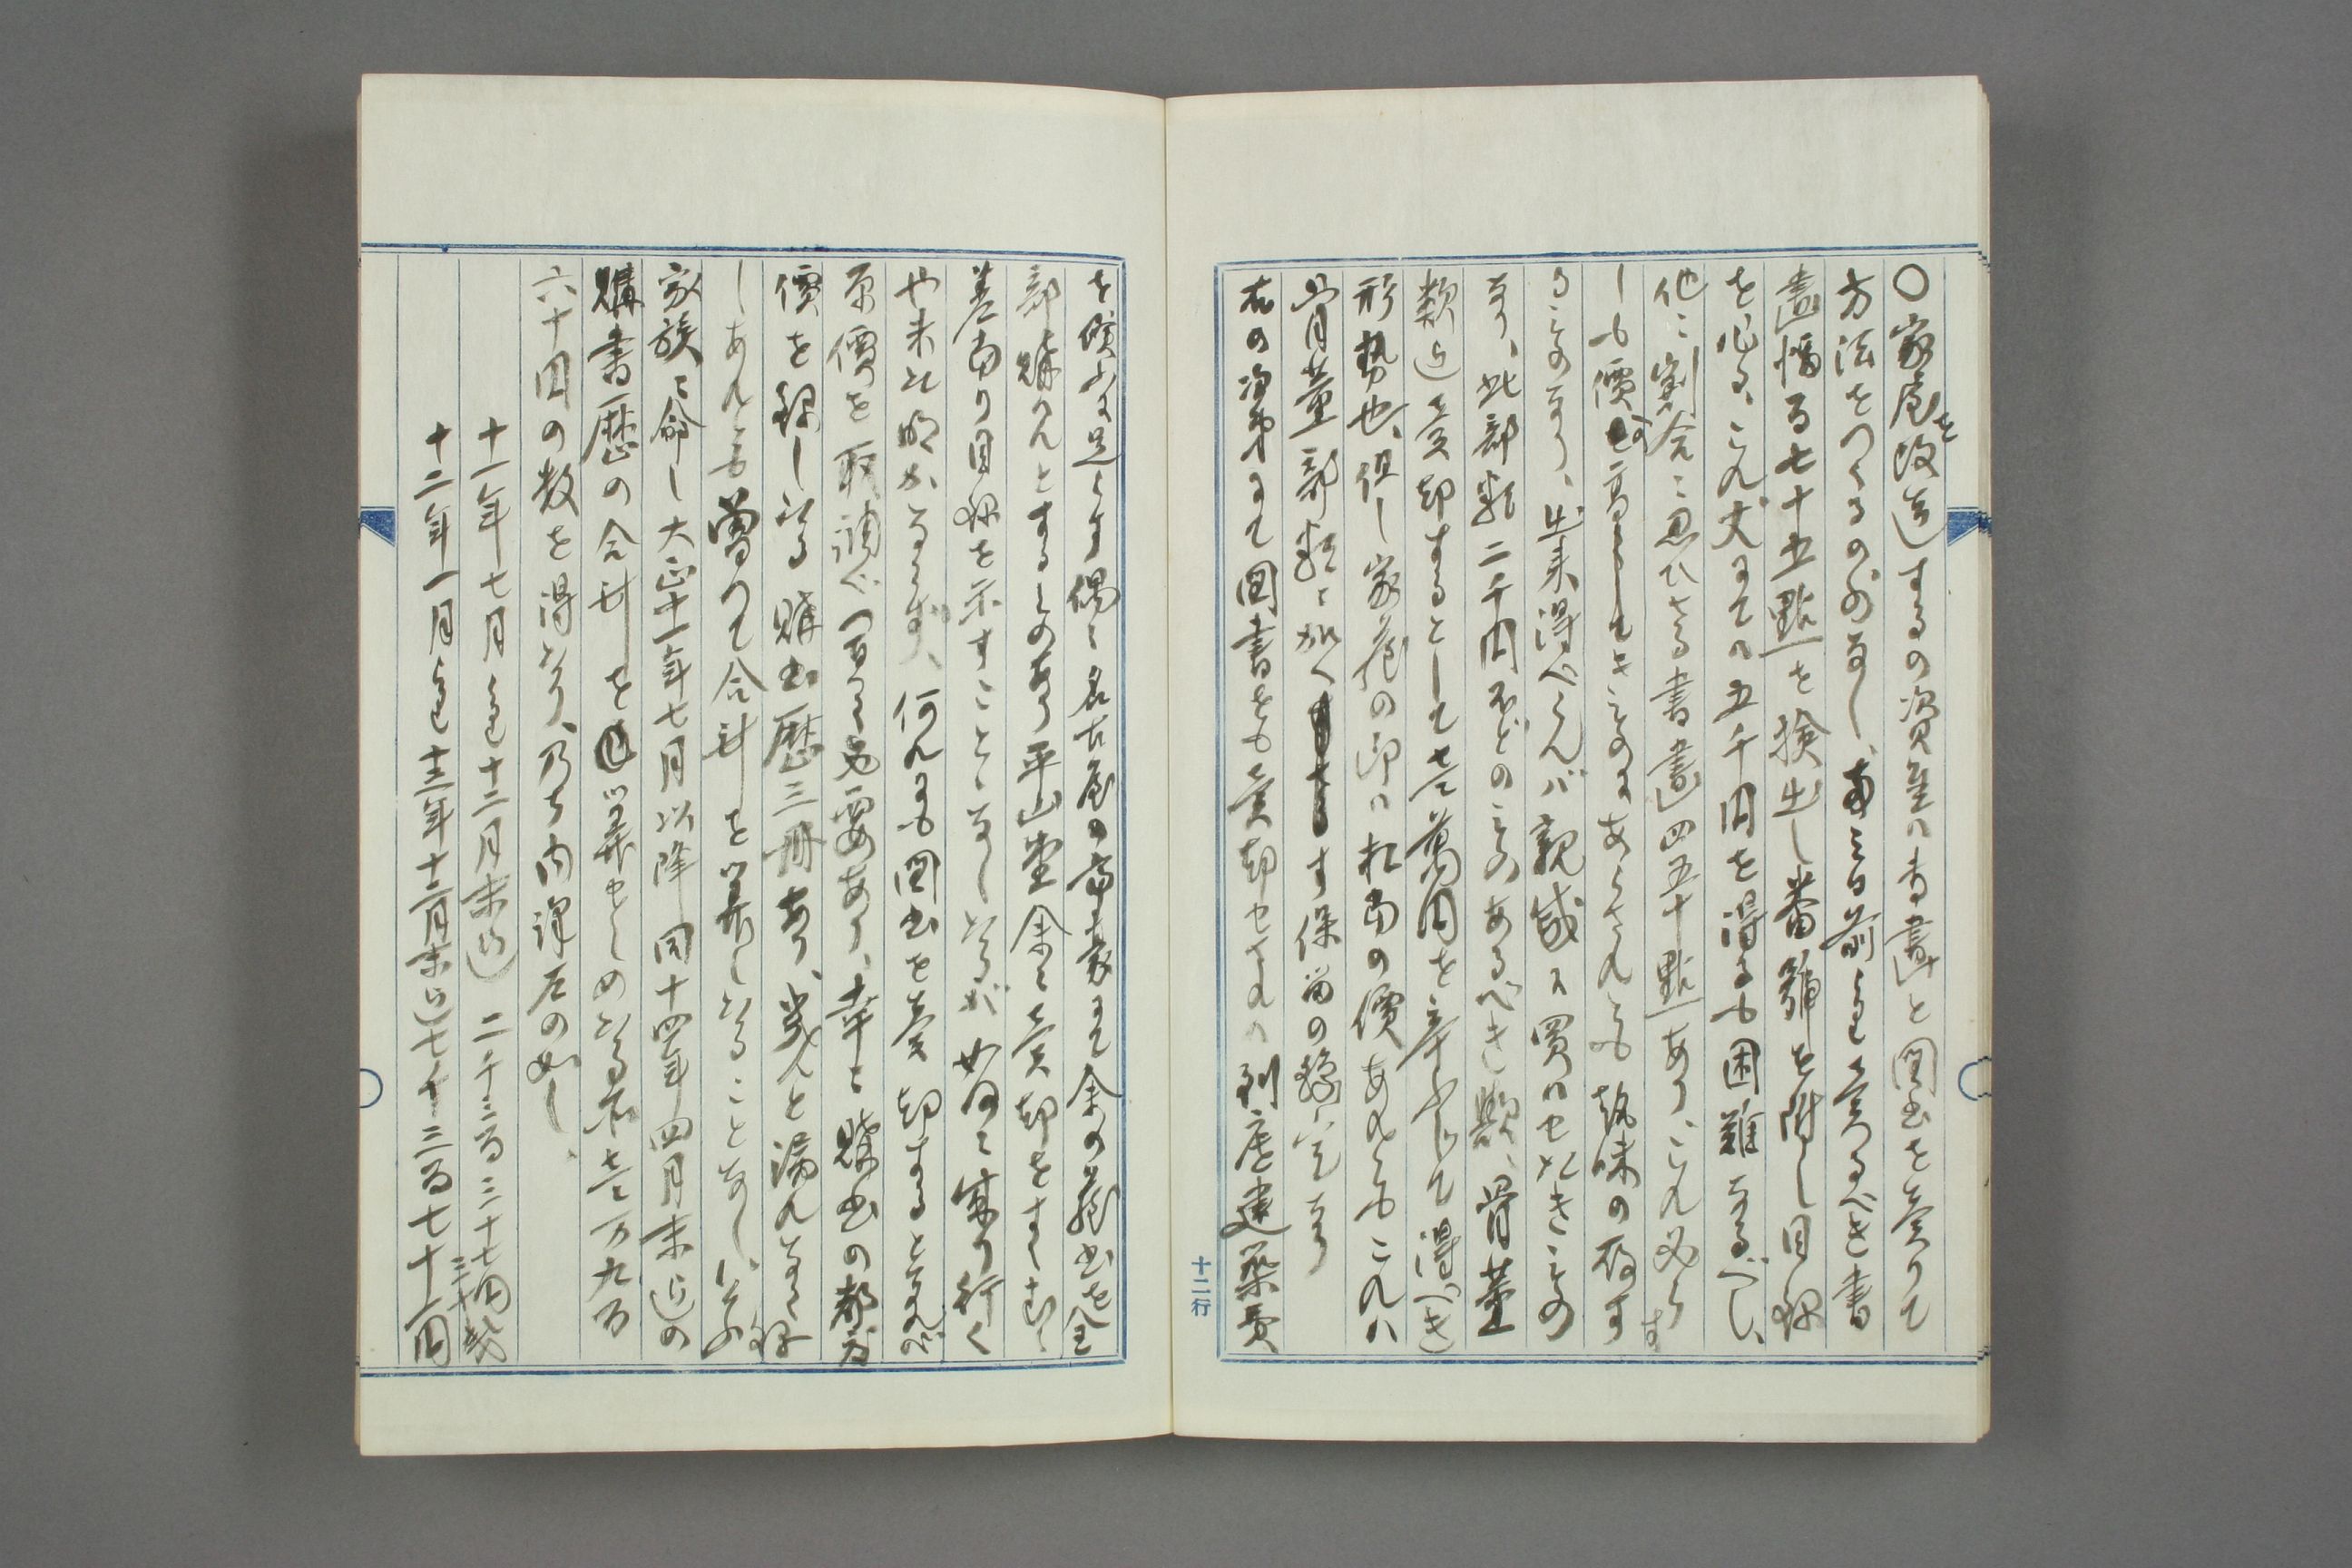 〇家屋を改造するの資金ハ書畫と図書を売りて
方法をつくるの外なし、両三日前より売るべき書
畫幅百七十五點を検出し番号を附し目録
を作る、これ丈にてハ五千円を得るも困難なるべし、
他に割合に思ひきる書畫四五十點あり、これ必らす
しも價高らしきものにあらされとも趣味の存す
るものなり、出来得べくんバ親戚に買ハせたきもの
なり、此部類二千円ほどのものあるべき歟、骨董
類迄売却するとして壱萬円を辛ふじて得べき
形勢也、但し家蔵の印ハ相当の價あれともこれハ
骨董部類に加へす保留の積りなり
右の次第にて図書をも売却せされハ到底建築費
を償ふに足らす偶々名古屋の富豪にて余の蔵書を全
部購はんとするものあり平山堂余に売却をすゝむ
差当り目録を示すことゝなしたるが如何に成り行く
や未た明かならず、何れにも図書を売却するとなれバ
原價を取調ぐ置くの必要あり、幸に購書の都度
價を録したる購書歴三冊あり、殆んと漏れなく録
しあれと嘗つて合計を算したることなし、仍ほ
家族に命し大正十一年七月以降同十四年四月末迄の
購書歴の合計を算せしめたるに壱万九百
六十円の数を得たり、乃ち内訳左の如し
十一年七月より十二月末迄 二千三百三十七円三十銭
十二年一月より十三年十二月末迄七千三百七十一円
十二行